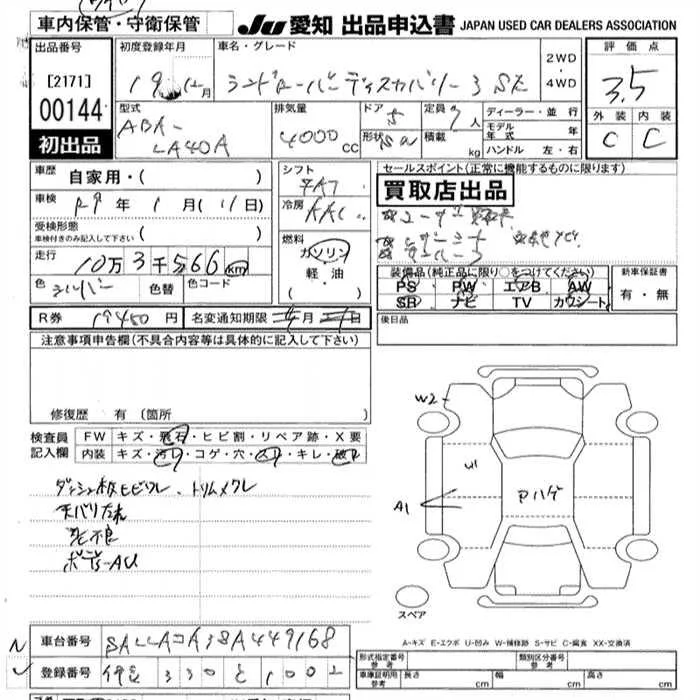 車内保管・守衛保管
JU 愛知 出品申込書 JAPAN USED CAR DEALERS ASSOCIATION
出品番号 [2171] 00144 初出品
初度登録年月 19 年 12月
車名・グレード ランドローバー ディスカバリー3 SE
2WD・4WD
評価点 3.5
外装 C 内装 C
型式 ABA-LA40A
排気量 4000cc
ドア 5 形状 SW
定員 7人 積載 kg
ディーラー・並行
モデル年式 年
ハンドル 左・右
車歴 自家用・( )
車検 29年 1月(11日)
受検形態 車検付きのみ記入して下さい ( )
走行 10万3千566km
色 シルバー 色替 色コード
シフト FAT
冷房 AAC
燃料 ガソリン 軽油 ・( )
セールスポイント(正常に機能するものに限ります)
買取店出品
装備品(純正品に限り○をつけてください)
PS PW エアB AW
SR ナビ TV カワシート
新車保証書 有・無
R券 450円 名変通知期限 月 日
後日品
注意事項申告欄(不具合内容等は具体的に記入して下さい)
修復歴 有(箇所 )
検査員記入欄
FW キズ・飛石・ヒビ割・リペア跡・X要
内装 キズ・汚れ・コゲ・穴・スレ・キレ・破れ
ダッシュ板ヒビワレ、トリムメクレ
天バリたれ
ボデーAU
W2
U1
A1
ハゲ
スペア
A-キズ E-エクボ U-凹み W-補修跡 S-サビ C-腐食 XX-交換済
車台番号 SALLAJA38A449168
登録番号 330 と 1002
形式指定番号 参考
類別区分番号 参考
車庫証明用 参考 長さ cm 幅 cm 高さ cm